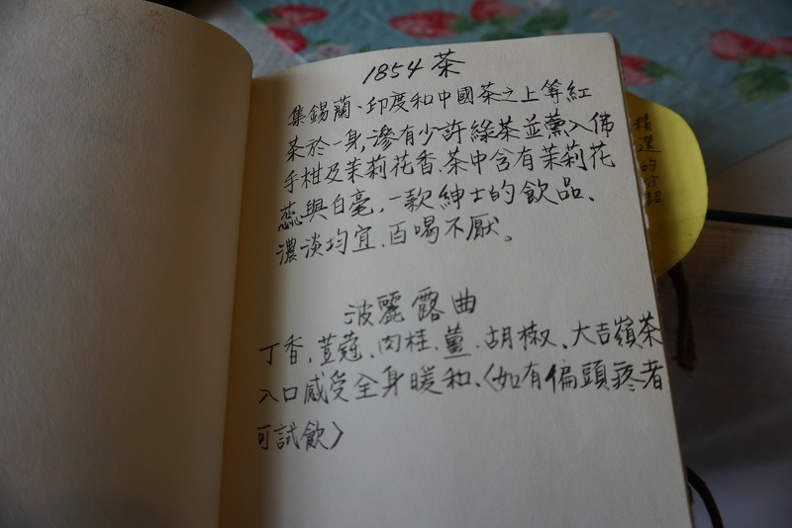 1854 茶
集錫蘭、印度和中國茶之上等紅
茶於一身,滲有少許綠茶並薰入佛
手柑及茉莉花香.茶中含有茉莉花
蕊與白毫,一款紳士的飲品、
濃淡均宜.百喝不厭。
波麗露曲
丁香,荳蔻、肉桂.薑.胡椒、大吉嶺茶
入口感受全身暖和、〈如有偏頭疼者
可試飲〉
精選的